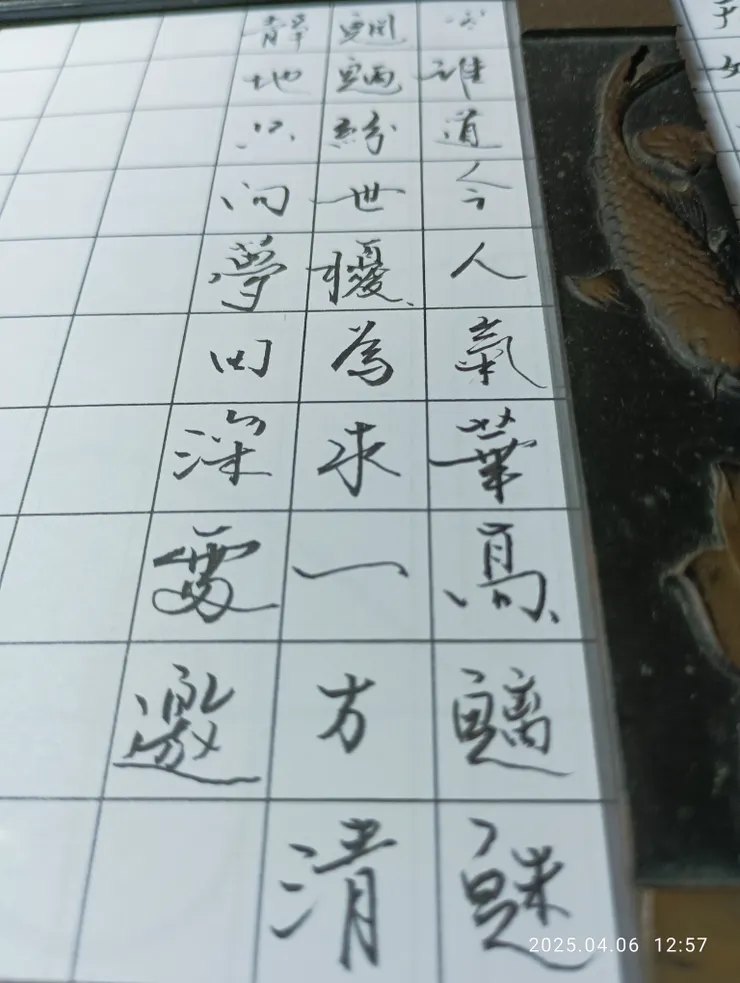 誰道今人氣華高魑魅
魍魎紛世擾為求一方清
靜地只问夢田深處邀
2025.04.06 12:57